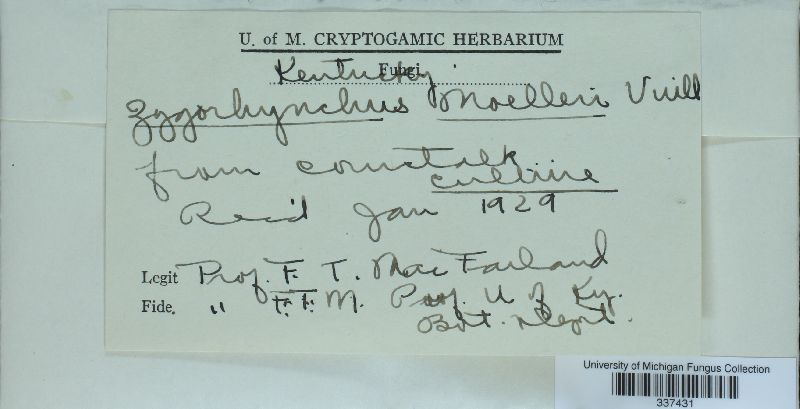 U. of M. CRYPTOGAMIC HERBARIUM
Fungi
Kentucky
Zygorhynchus Moelleri Vuill
from cornstalk
culture
Rec'd Jan 1929
Legit Prof. F. T. MacFarland
Fide. " F. T. M. Prof. U of Ky.
Bot. Dept.
University of Michigan Fungus Collection
337431